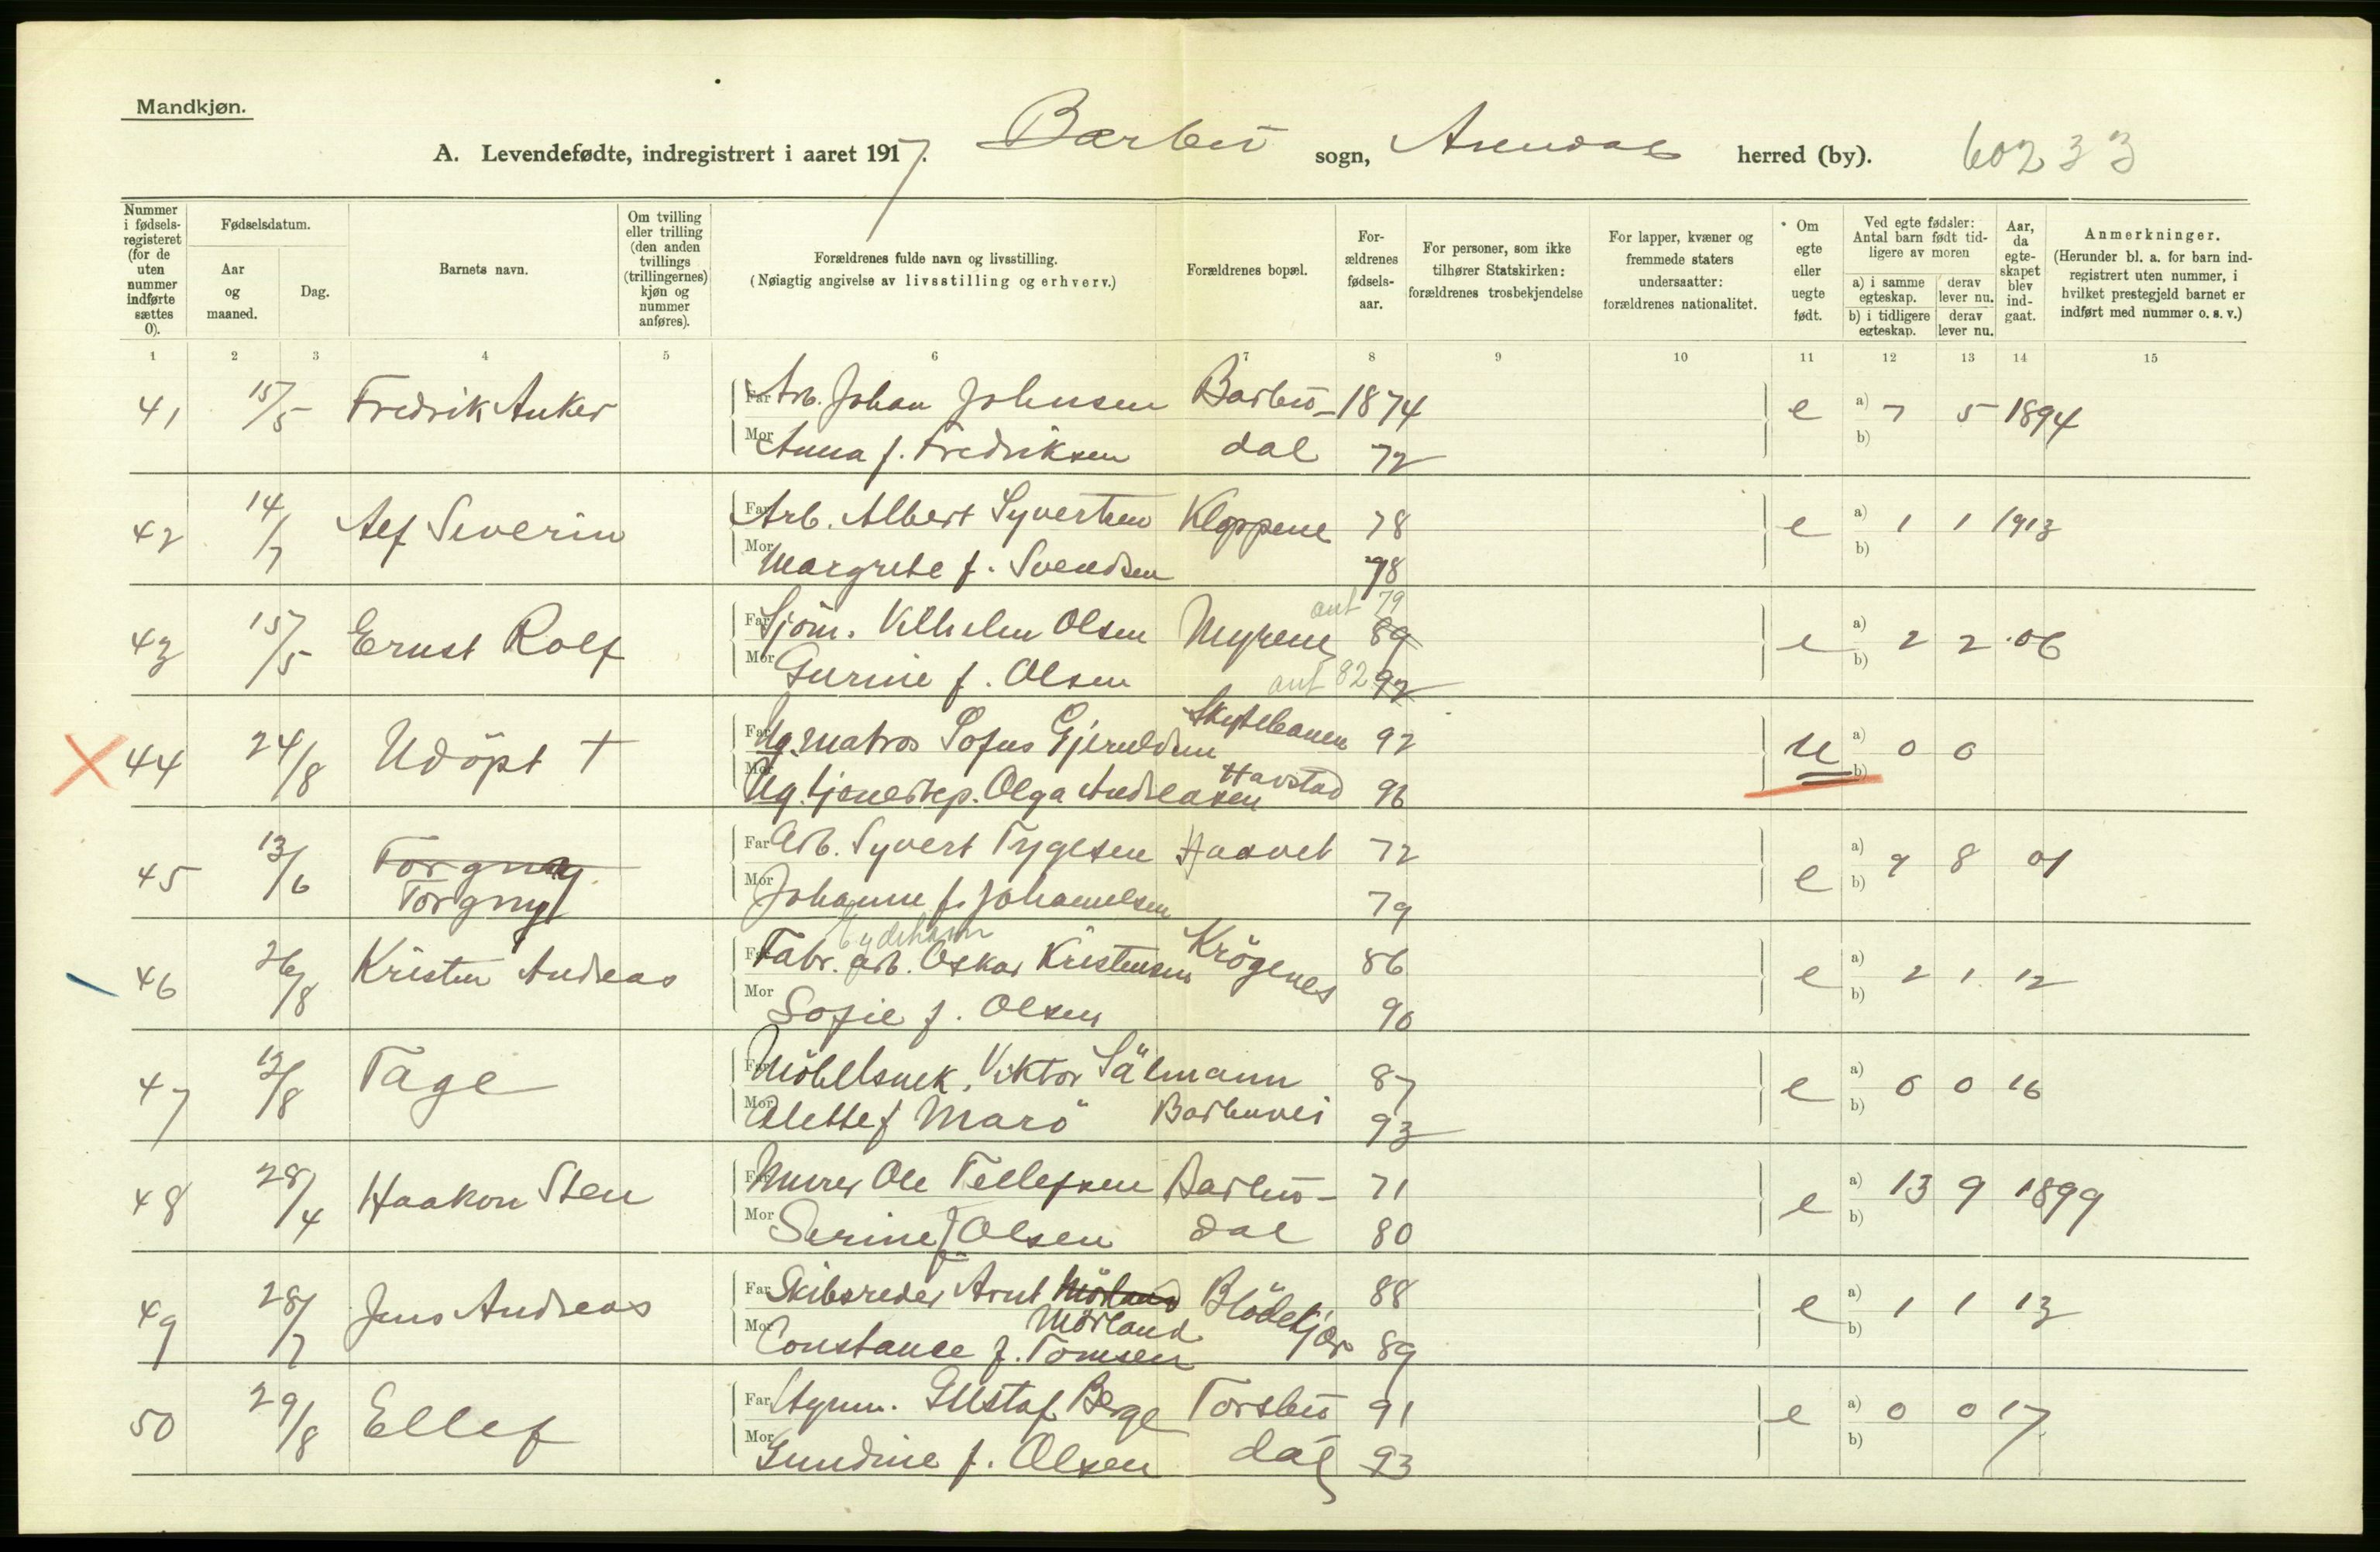 Mandkjøn.
A. Levendefødte, indregistrert i aaret 1917. Barbu sogn, Arendal herred (by). 60233
Nummer i fødsels-registeret (for de uten nummer indførte sættes 0).
Fødselsdatum.
Aar og maaned.
Dag.
Barnets navn.
Om tvilling eller trilling (den anden tvillings (trillingernes) kjøn og nummer anføres).
Forældrenes fulde navn og livsstilling.
(Nøiagtig angivelse av livsstilling og erhverv.)
Forældrenes bopæl.
For-ældrenes fødsels-aar.
For personer, som ikke tilhører Statskirken: forældrenes trosbekjendelse
For lapper, kvæner og fremmede staters undersaatter: forældrenes nationalitet.
Om egte eller uegte født.
Ved egte fødsler: Antal barn født tid-ligere av moren
a) i samme egteskap. derav lever nu.
b) i tidligere egteskap. derav lever nu.
Aar, da egte-skapet blev ind-gaat.
Anmerkninger.
(Herunder bl. a. for barn ind-registrert uten nummer, i hvilket prestegjeld barnet er indført med nummer o. s. v.)
1 2 3 4 5 6 7 8 9 10 11 12 13 14 15
41 15/5 Fredrik Anker Far Arb. Johan Johnsen Barbu- 1874 e a) 7 5 1894
Mor Anna f. Fredriksen dal 72 b)
42 14/7 Alf Severin Far Arb. Albert Syvertsen Kloppene 78 e a) 1 1 1913
Mor Margrete f. Svendsen 98 b)
43 15/5 Ernst Rolf Far Sjöm. Vilhelm Olsen Myrene ant 79 89 e a) 2 2 06
Mor Gurine f. Olsen ant 82 92 b)
44 24/8 Udöpt † Far Ug. matros Sofus Gjeruldsen Skytebanen 92 u a) 0 0
Mor Ug. tjenestep. Olga Andreasen Havstad 96 b)
45 13/6 Torgny Far Arb. Syvert Tygesen Haavet 72 e a) 9 8 01
Torgny Mor Johanne f. Johannelsen 79 b)
Eydehavn
46 26/8 Kristen Andreas Far Fabr. arb. Oskar Kristensen Krögenes 86 e a) 2 1 12
Mor Sofie f. Olsen 90 b)
47 12/8 Tage Far Möbelsnek. Viktor Sälmann 87 e a) 0 0 16
Mor Alette f Marö Barbuvei 93 b)
48 28/4 Haakon Sten Far Murer Ole Tellefsen Barbu- 71 e a) 13 9 1899
Mor Serine f Olsen dal 80 b)
49 28/7 Jens Andreas Far Skibsreder Arnt Mörland Blödekjær 88 e a) 1 1 13
Mörland
Mor Constance f. Tomsen 89 b)
50 29/8 Ellef Far Styrm. Gustaf Berge Torsbu 91 e a) 0 0 17
Mor Gundine f. Olsen dal 93 b)